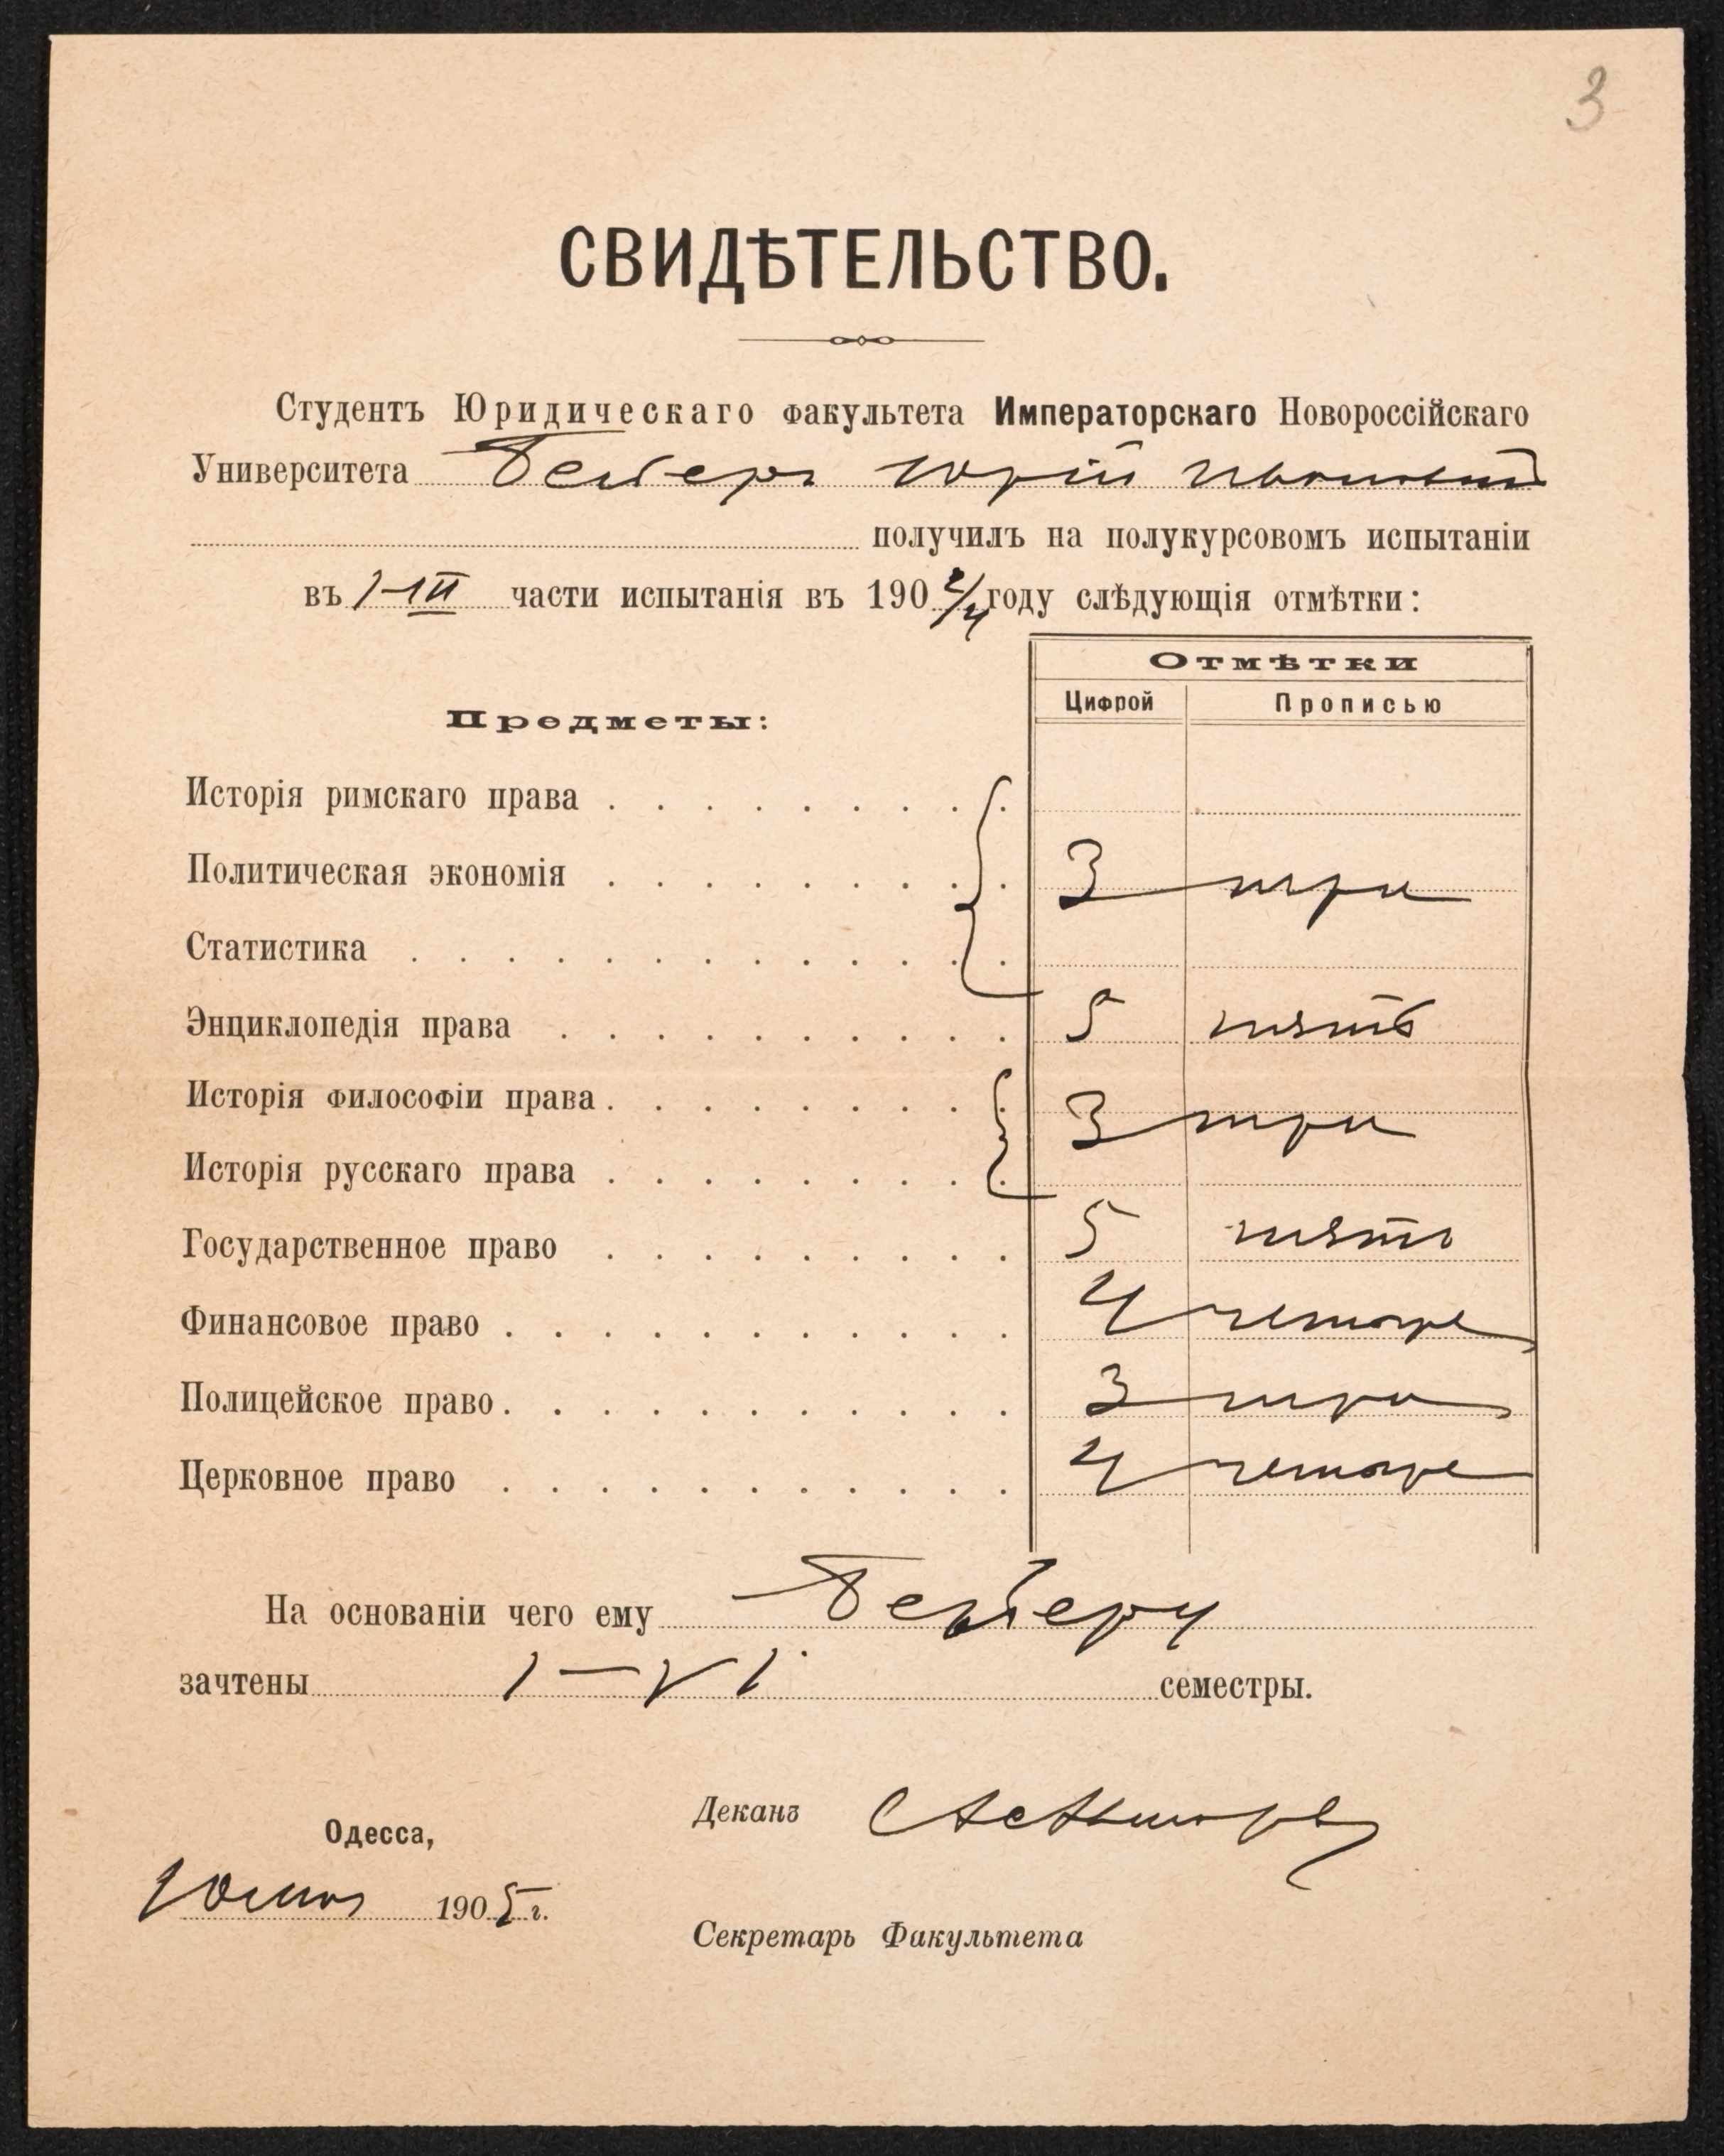 3
СВИДѢТЕЛЬСТВО.
Студентъ Юридическаго факультета Императорскаго Новороссійскаго
Университета Юрій
получилъ на полукурсовомъ испытаніи
въ I-III части испытанія въ 190 2/4 году слѣдующія отмѣтки:
Отмѣтки
Предметы: Цифрой Прописью
Исторія римскаго права
Политическая экономія 3 три
Статистика
Энциклопедія права 5 пять
Исторія философіи права 3 три
Исторія русскаго права
Государственное право 5 пять
Финансовое право 4 четыре
Полицейское право 3 три
Церковное право 4 четыре
На основаніи чего ему
зачтены I-VI семестры.
Деканъ
Одесса,
1905 г.
Секретарь Факультета